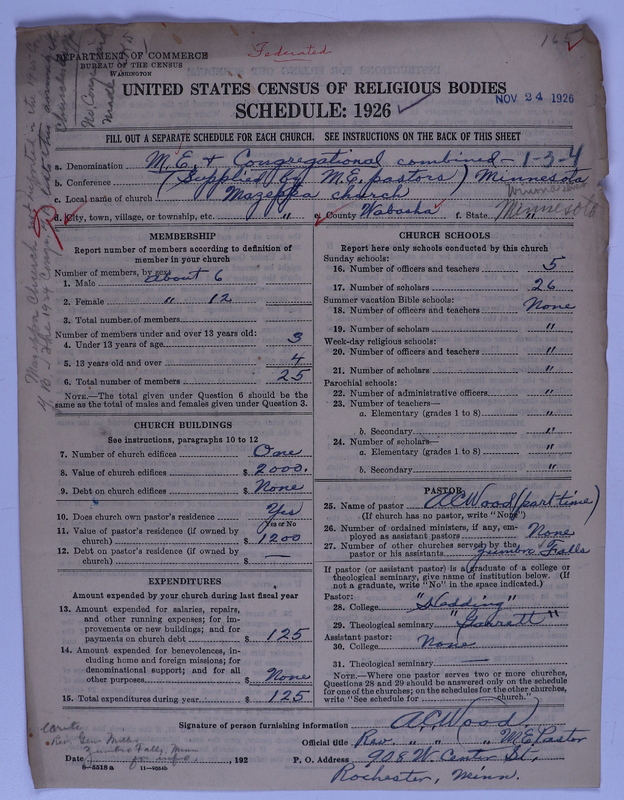 Federated
165
DEPARTMENT OF COMMERCE
BUREAU OF THE CENSUS
WASHINGTON
UNITED STATES CENSUS OF RELIGIOUS BODIES
SCHEDULE: 1926
NOV 24 1926
FILL OUT A SEPARATE SCHEDULE FOR EACH CHURCH. SEE INSTRUCTIONS ON THE BACK OF THIS SHEET
a. Denomination M.E. & Congregational combined - 1-3-4
b. Conference (Supplied by M.E. pastors) Minnesota
c. Local name of church Mazeppa church
d. City, town, village, or township, etc. " e. County Wabasha f. State Minnesota
MEMBERSHIP
Report number of members according to definition of
member in your church
Number of members, by sex:
1. Male about 6
2. Female " 12
3. Total number of members
Number of members under and over 13 years old:
4. Under 13 years of age 3
5. 13 years old and over 4
6. Total number of members 25
NOTE.—The total given under Question 6 should be the
same as the total of males and females given under Question 3.
CHURCH BUILDINGS
See instructions, paragraphs 10 to 12
7. Number of church edifices One
8. Value of church edifices $ 2000.
9. Debt on church edifices $ None
10. Does church own pastor's residence Yes
Yes or No
11. Value of pastor's residence (if owned by
church) $ 1200
12. Debt on pastor's residence (if owned by
church) $ —
EXPENDITURES
Amount expended by your church during last fiscal year
13. Amount expended for salaries, repairs,
and other running expenses; for im-
provements or new buildings; and for
payments on church debt $ 125
14. Amount expended for benevolences, in-
cluding home and foreign missions; for
denominational support; and for all
other purposes $ None
15. Total expenditures during year $ 125
CHURCH SCHOOLS
Report here only schools conducted by this church
Sunday schools:
16. Number of officers and teachers 5
17. Number of scholars 26
Summer vacation Bible schools:
18. Number of officers and teachers None
19. Number of scholars "
Week-day religious schools:
20. Number of officers and teachers "
21. Number of scholars "
Parochial schools:
22. Number of administrative officers "
23. Number of teachers—
a. Elementary (grades 1 to 8) "
b. Secondary "
24. Number of scholars—
a. Elementary (grades 1 to 8) "
b. Secondary "
PASTOR
25. Name of pastor A C Wood (part time)
(If church has no pastor, write "None")
26. Number of ordained ministers, if any, em-
ployed as assistant pastors None
27. Number of other churches served by the
pastor or his assistants Zumbro Falls
If pastor (or assistant pastor) is a graduate of a college or
theological seminary, give name of institution below. (If
not a graduate, write "No" in the space indicated.)
Pastor:
28. College "Hedding"
29. Theological seminary "Garrett"
Assistant pastor:
30. College None
31. Theological seminary —
NOTE.—Where one pastor serves two or more churches,
Questions 28 and 29 should be answered only on the schedule
for one of the churches; on the schedules for the other churches,
write "See schedule for church."
Signature of person furnishing information A. C. Wood
Official title Rev. " " " M.E. Pastor
Date , 192 P. O. Address 908 W. Center St,
Rochester, Minn.
8-5518a 11-9554b
write
Rev. Geo.
Zumbro Falls, Minn
for info.